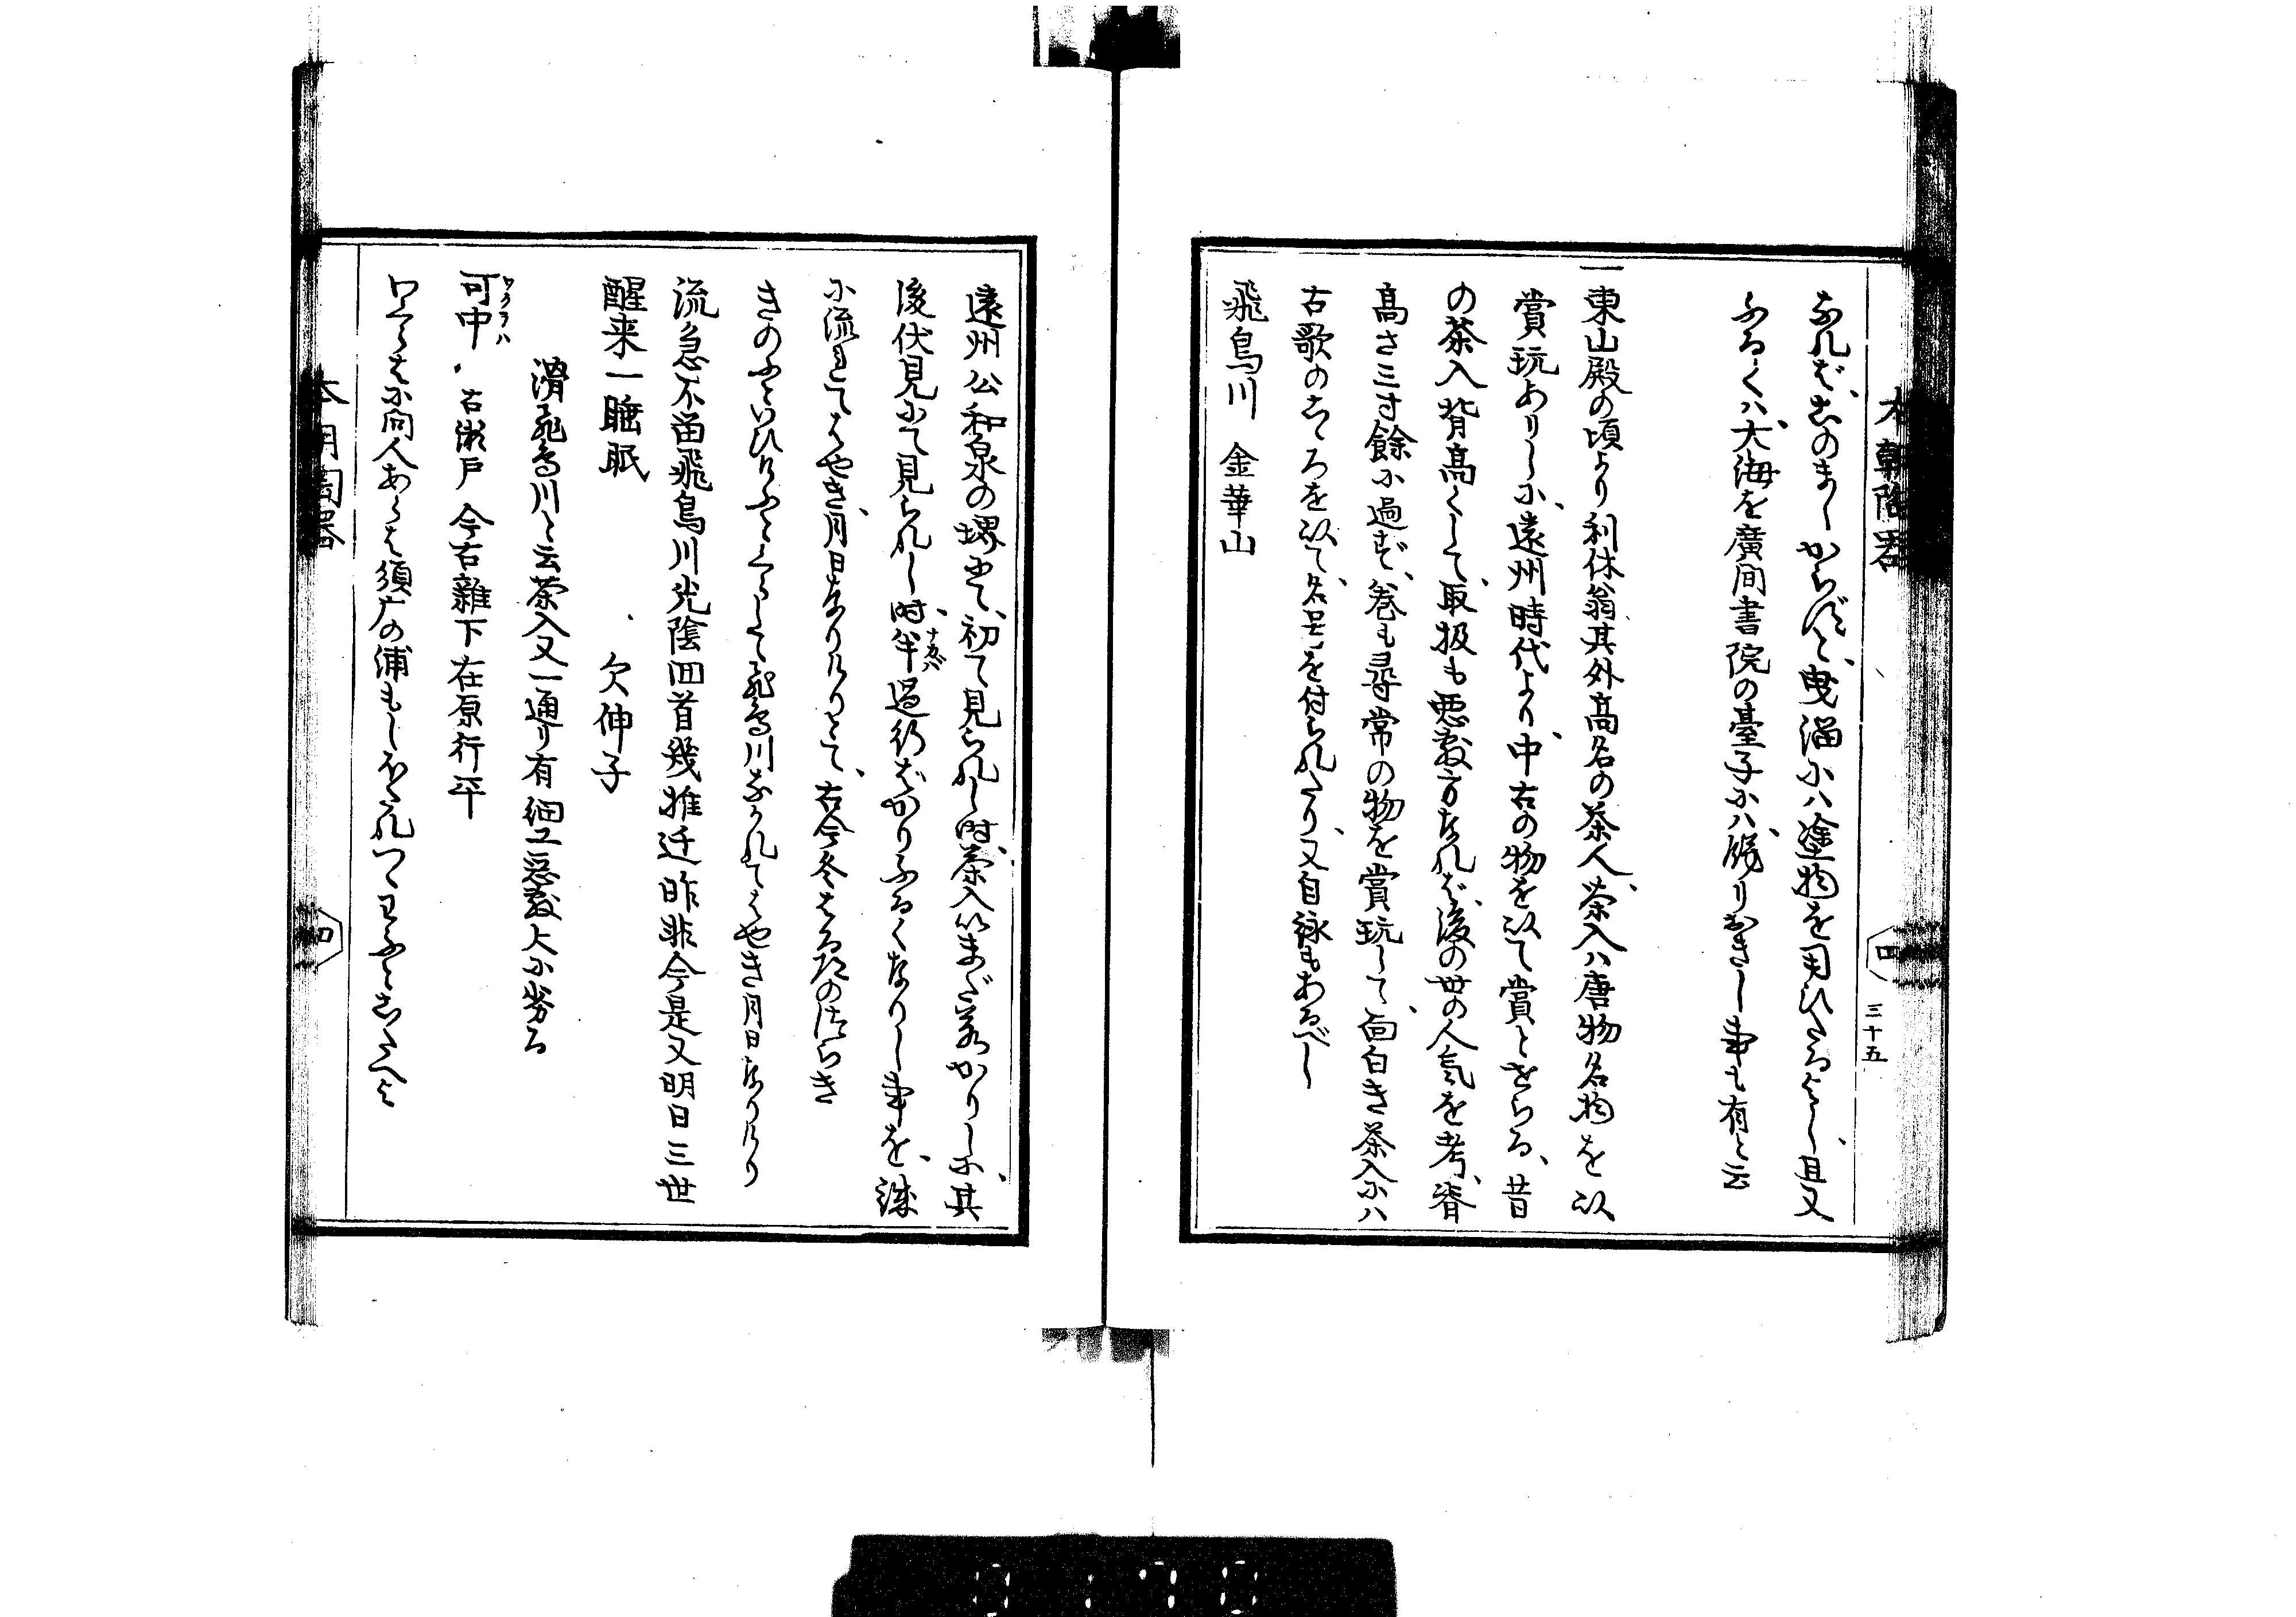 本朝陶器
四
三十五
なれば、このましからずと、曳溜にハ塗物を用ひたるよし、且又
ふるくハ、大海を廣間書院の臺子にハ、飾りおきし事も有と云
一東山殿の頃より利休翁其外高名の茶人、茶入ハ唐物名物を以
賞玩ありしに、遠州時代より、中古の物を以て賞とせらる、昔
の茶入背高くして、取扱も悪敷方なれば、後の世の人気を考、脊
高さ三寸餘に過ず、巻も尋常の物を賞玩して、面白き茶入にハ
古歌のこゝろを以て、名号を付られたり、又自詠もあるべし
飛鳥川 金華山
遠州公和泉の堺にて、初て見られし時、茶入いまだ若かりしに、其
後伏見にて見られし時、半過行ばかりふるくなりし事を、誠
に流れてはやき、月日なりけりとて、古今冬はるみちのつらき
きのふといひけふとくらして飛鳥川ながれてはやき月日なりけり
流急不留飛鳥川光陰回首幾推迁昨非今是又明日三世
醒来一睡眠 欠伸子
滑飛鳥川と云茶入又一通り有細工惡敷大に劣る
可中 ワクラハ 古瀬戸 今古雜下在原行平
わくらはに問人あらは須广の浦もしほたれつゝわふとこたへよ
本朝陶器
四